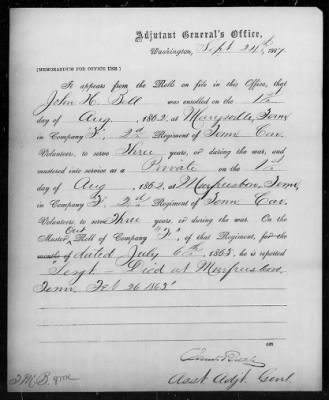 Adjutant General's Office,
Washington, Sept 24th, 1867.
[MEMORANDUM FOR OFFICE USE.]
It appears from the Rolls on file in this Office, that
John H. Bell was enrolled on the 1st
day of Aug, 1862, at Marysville, Tenn
in Company "I", 2nd Regiment of Tenn Cav.
Volunteers, to serve Three years, or during the war, and
mustered into service as a Private on the 1st
day of Aug, 1862, at Murfreesboro, Tenn,
in Company "I", 2nd Regiment of Tenn Cav.
Volunteers, to serve Three years, or during war. On the
Muster Out Roll of Company "I", of that Regiment, for the
months of dated July 6th, 1865, he is reported
"Sergt - Died at Murfreesboro,
Tenn Feb 26 1863"
Asst Adjt. Genl